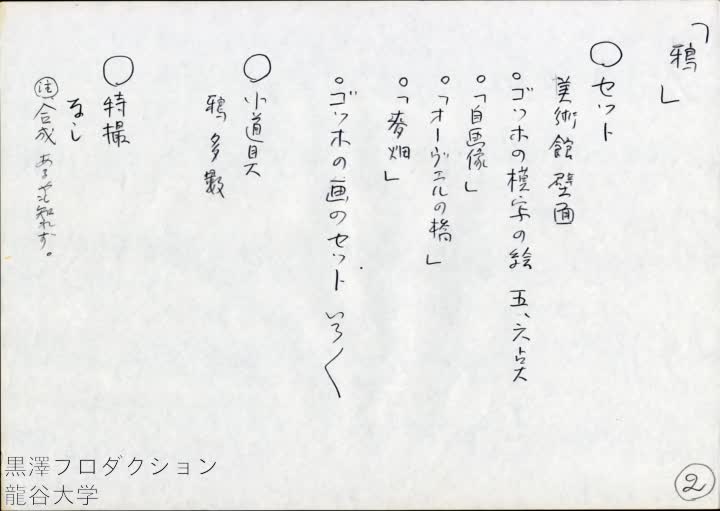 「鴉」
○セット
美術館壁面
○ゴッホの模写の絵 五、六点大
○「自画像」
○「オーヴェルの橋」
○「麦畑」
○ゴッホの画のセット いろ〱
○小道具
鴉多数
○特撮
なし
㊟合成あるやも知れず。
②
黒澤プロダクション
龍谷大学